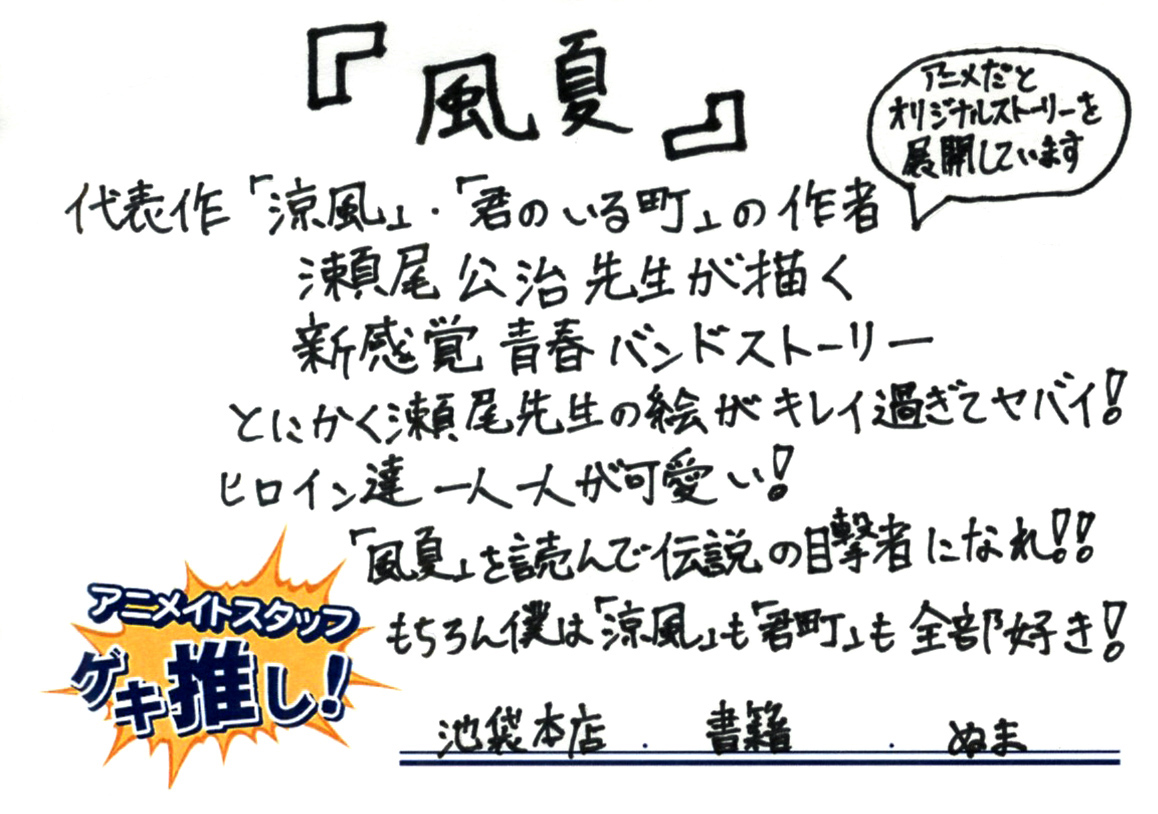 『風夏』
アニメだと
オリジナルストーリーを
展開しています
代表作「涼風」・「君のいる町」の作者
瀬尾公治先生が描く
新感覚青春バンドストーリー
とにかく瀬尾先生の絵がキレイ過ぎてヤバイ!
ヒロイン達一人一人が可愛い!
「風夏」を読んで伝説の目撃者になれ!!
もちろん僕は「涼風」も「君町」も全部好き!
アニメイトスタッフ
ゲキ推し!
池袋本店 . 書籍 . ぬま